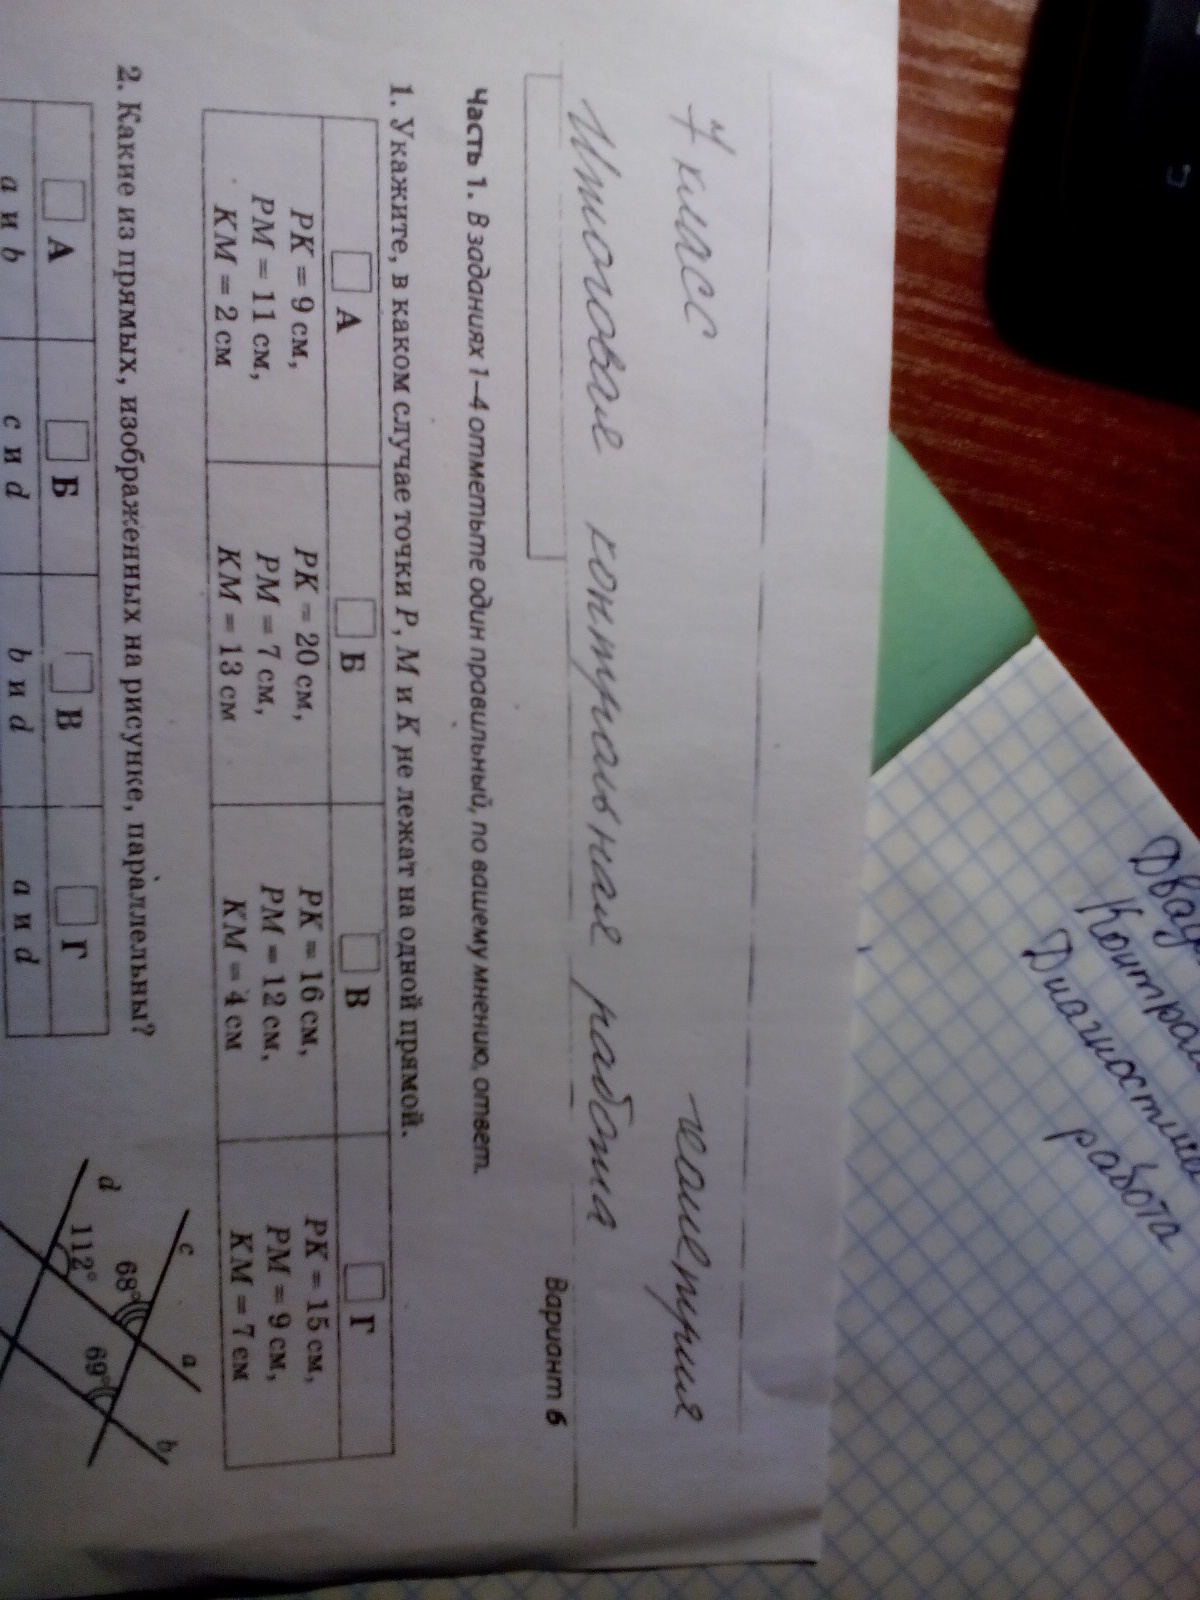 7 класс геометрия
Итоговая контрольная работа
Вариант 6
Часть 1. В заданиях 1–4 отметьте один правильный, по вашему мнению, ответ.
1. Укажите, в каком случае точки P, M и K не лежат на одной прямой.
А Б В Г
PK = 9 см, PK = 20 см, PK = 16 см, PK = 15 см,
PM = 11 см, PM = 7 см, PM = 12 см, PM = 9 см,
KM = 2 см KM = 13 см KM = 4 см KM = 7 см
2. Какие из прямых, изображенных на рисунке, параллельны?
А Б В Г
a и b c и d b и d a и d
c a b
68° 69°
d 112°
работа